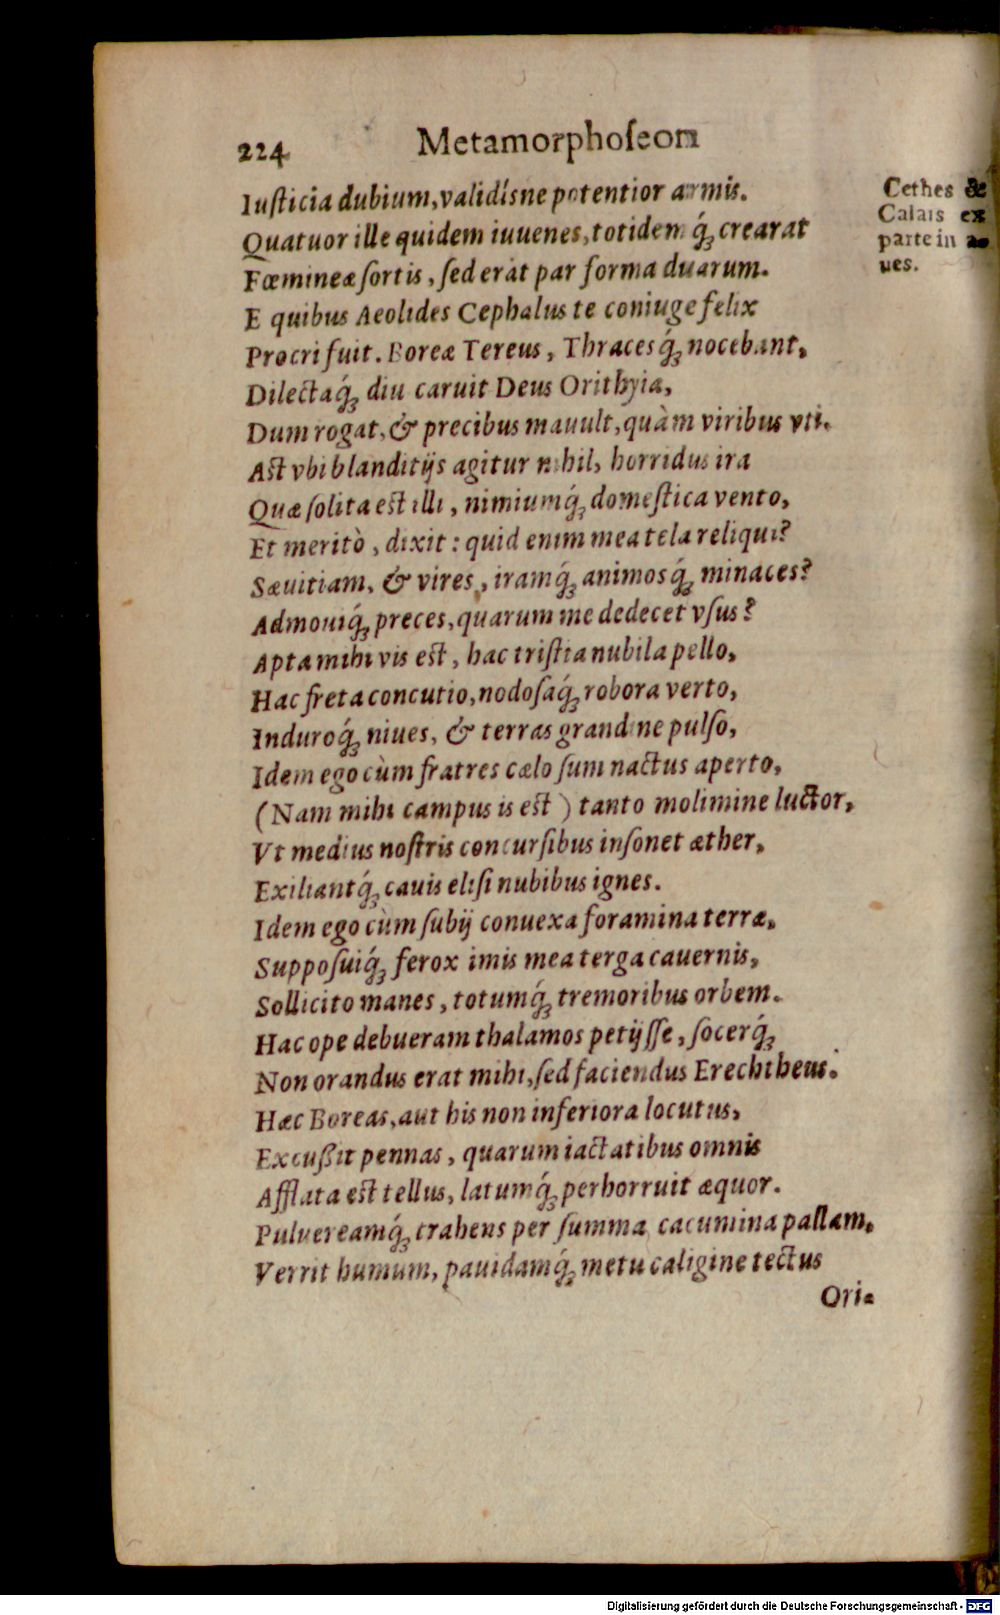 224 Metamorphoſeon
Iuſticia dubium, validíſne potentior armis.
Quatuor ille quidem iuuenes, totidem q́ꝫ crearat
Fœmineæ ſortis, ſed erat par forma duarum.
E quibus Aeolides Cephalus te coniuge felix
Procri fuit. Boreæ Tereus, Thracesq́ꝫ nocebant,
Dilectaq́ꝫ diu caruit Deus Orithyia,
Dum rogat, & precibus mauult, quàm viribus vti.
Aſt vbi blanditijs agitur nihil, horridus ira
Quæ ſolita eſt illi, nimiumq́ꝫ domeſtica vento,
Et meritò, dixit: quid enim mea tela reliqui?
Sæuitiam, & vires, iramq́ꝫ animosq́ꝫ minaces?
Admouiq́ꝫ preces, quarum me dedecet vſus?
Apta mihi vis eſt, hac triſtia nubila pello,
Hac freta concutio, nodoſaq́ꝫ robora verto,
Induroq́ꝫ niues, & terras grandine pulſo,
Idem ego cùm fratres cælo ſum nactus aperto,
(Nam mihi campus is eſt) tanto molimine luctor,
Vt medius noſtris concurſibus inſonet æther,
Exiliantq́ꝫ cauis eliſi nubibus ignes.
Idem ego cùm ſubij conuexa foramina terræ,
Suppoſuiq́ꝫ ferox imis mea terga cauernis,
Sollicito manes, totumq́ꝫ tremoribus orbem.
Hac ope debueram thalamos petijſſe, ſocerq́ꝫ
Non orandus erat mihi, ſed faciendus Erechtheus.
Hæc Boreas, aut his non inferiora locutus,
Excußit pennas, quarum iactatibus omnis
Afflata eſt tellus, latumq́ꝫ perhorruit æquor.
Puluereamq́ꝫ trahens per ſumma cacumina pallam,
Verrit humum, pauidamq́ꝫ metu caligine tectus
Ori-
Cethes &
Calais ex
parte in a-
ues.
Digitalisierung gefördert durch die Deutsche Forschungsgemeinschaft - DFG